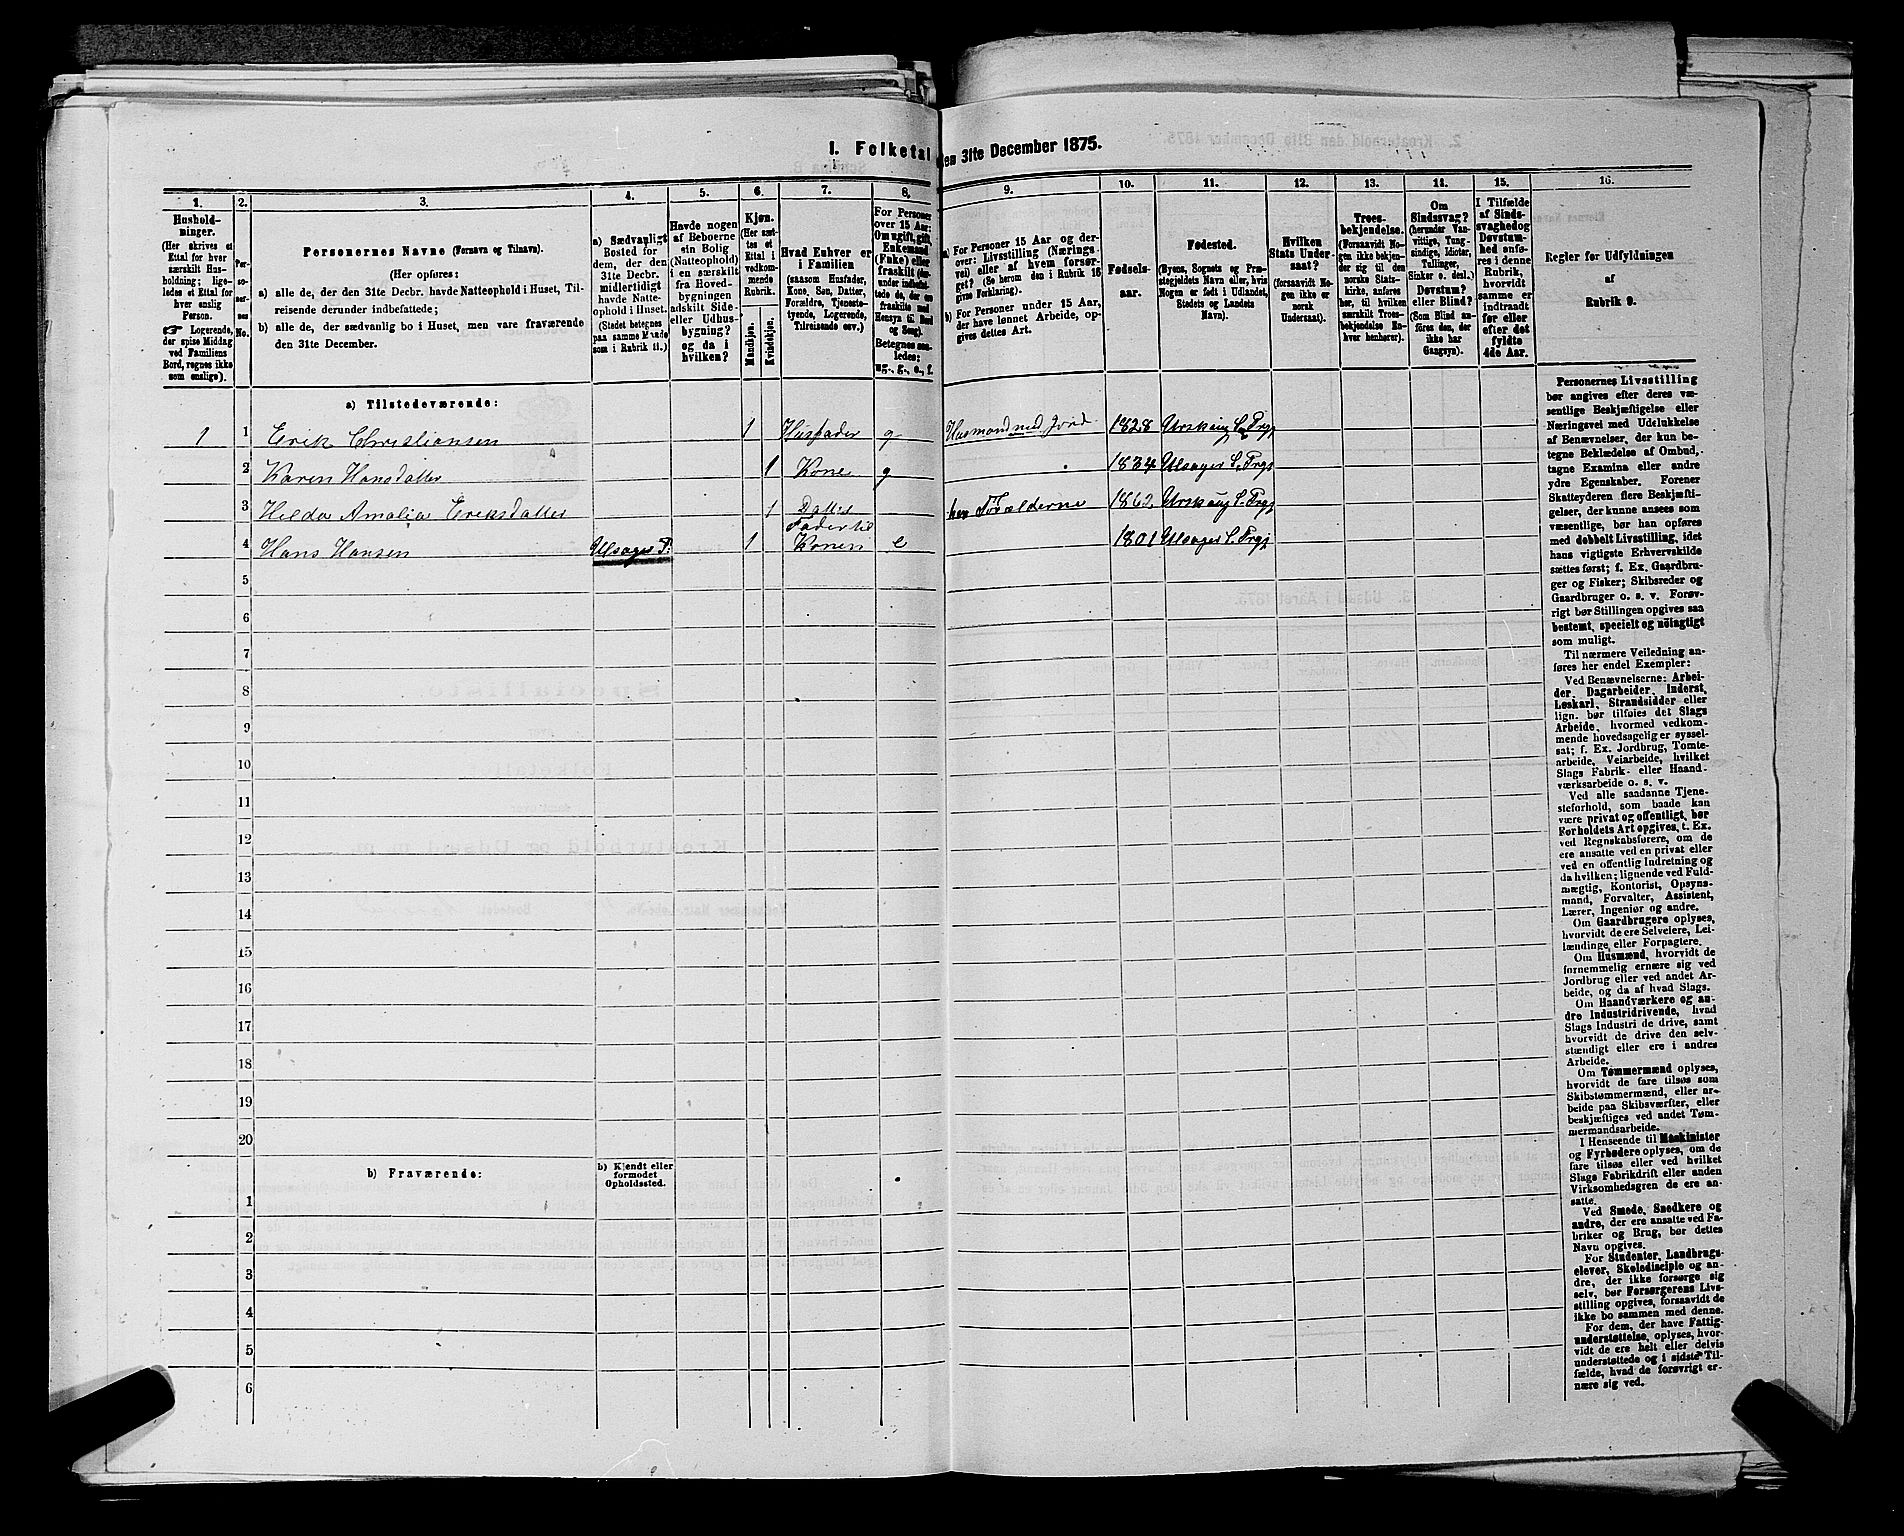 I. Folketal den 31te December 1875.
1. 2. 3. 4. 5. 6. 7. 8. 9. 10. 11. 12. 13. 14. 15. 16.
Hushold-
ninger.
(Her skrives et
Ettal for hver
særskilt Hus-
holdning; lige-
ledes et Ettal for
hver enslig
Person.
☞ Logerende,
der spise Middag
ved Familiens
Bord, regnes ikke
som enslige).
Per-
so-
ner-
nes
No.
Personernes Navne (Fornavn og Tilnavn).
(Her opføres:
a) alle de, der den 31te Decbr. havde Natteophold i Huset, Til-
reisende derunder indbefattede;
b) alle de, der sædvanlig bo i Huset, men vare fraværende
den 31te December.
a) Sædvanligt
Bosted for
dem, der den
31te Decbr.
midlertidigt
havde Natte-
ophold i Huset.
(Stedet betegnes
paa samme Maade
som i Rubrik 11.)
Havde nogen
af Beboerne
sin Bolig
(Natteophold)
i en særskilt
fra Hoved-
bygningen
adskilt Side-
eller Udhus-
bygning?
og da i
hvilken?
Kjøn.
(Her sæt-
tes et
Ettal i
vedkom-
mende
Rubrik.
Mandkjøn.
Kvindekjøn.
Hvad Enhver er
i Familien
(saasom Husfader,
Kone, Søn, Datter,
Forældre, Tjeneste-
tyende, Logerende,
Tilreisende osv.)
For Personer
over 15 Aar:
Om ugift, gift,
Enkemand
(Enke) eller
fraskilt (der-
under indbefat-
tede de, der ere
fraskilte med
Hensyn til Bord
og Seng).
Betegnes saa-
ledes:
ug., g., e., f.
a) For Personer 15 Aar og der-
over: Livsstilling (Nærings-
vei) eller af hvem forsør-
get? (Se herom den i Rubrik 16
givne Forklaring).
b) For Personer under 15 Aar,
der have lønnet Arbeide, op-
gives dettes Art.
Fødsels-
aar.
Fødested.
(Byens, Sognets og Præ-
stegjeldets Navn eller, hvis
Nogen er født i Udlandet,
Stedets og Landets
Navn).
Hvilken
Stats Under-
saat?
(forsaavidt No-
gen ikke er
norsk
Undersaat).
Troes-
bekjendelse.
(Forsaavidt No-
gen ikke bekjen-
der sig til den
norske Stats-
kirke, anføres
her, til hvilken
særskilt Troes-
bekjendelse En-
hver henhører).
Om
Sindssvag?
(herunder Van-
vittige, Tung-
sindige, Idioter,
Tullinger,
Sinker o. desl.)
Døvstum?
eller Blind?
(Som Blind an-
føres den, der
ikke har
Gangsyn).
I Tilfælde
af Sinds-
svaghed og
Døvstum-
hed anfø-
res i denne
Rubrik,
hvorvidt
samme er
indtraadt
før eller
efter det
fyldte
4de Aar.
Regler for Udfyldningen
af
Rubrik 9.
a) Tilstedeværende:
1 1 Erik Christiansen 1 Husfader g Husmand med Jord 1828 Urskoug S. Prgj
2 Karen Hansdatter 1 Kone g 1834 Ulsager S. Prgj
3 Hilda Amalia Eriksdatter 1 Datter Forælderne 1862 Urskoug S. Prgj
4 Hans Hansen Ulsager P. 1 Fader til Konen e 1801 Ulsager S. Prgj
5
6
7
8
9
10
11
12
13
14
15
16
17
18
19
20
b) Fraværende:
b) Kjendt eller
formodet
Opholdssted.
1
2
3
4
5
6
Personernes Livsstilling
bør angives efter deres væ-
sentlige Beskjæftigelse eller
Næringsvei med Udelukkelse
af Benævnelser, der kun be-
tegne Beklædelse af Ombud,
tagne Examina eller andre
ydre Egenskaber. Forener
Skatteyderen flere Beskjæfti-
gelser, der kunne ansees som
væsentlige, bør han opføres
med dobbelt Livsstilling, idet
hans vigtigste Erhvervskilde
sættes først; f. Ex. Gaardbru-
ger og Fisker; Skibsreder og
Gaardbruger o. s. v. Forøv-
rigt bør Stillingen opgives saa
bestemt, specielt og nöiagtigt
som muligt.
Til nærmere Veiledning an-
føres her endel Exempler:
Ved Benævnelserne: Arbei-
der, Dagarbeider, Inderst,
Løskarl, Strandsidder eller
lign. bør tilføies det Slags
Arbeide, hvormed vedkom-
mende hovedsagelig er syssel-
sat; f. Ex. Jordbrug, Tomte-
arbeide, Veiarbeide, hvilket
Slags Fabrik- eller Haand-
værksarbeide o. s. v.
Ved alle saadanne Tjene-
steforhold, som baade kan
være privat og offentligt, bør
Forholdets Art opgives, t. Ex.
ved Regnskabsførere, om de
ere ansatte ved en privat eller
ved en offentlig Indretning og
da hvilken; lignende ved Fuld-
mægtig, Kontorist, Opsyns-
mand, Forvalter, Assistent,
Lærer, Ingeniør og andre.
Om Gaardbrugere oplyses,
hvorvidt de ere Selveiere, Lei-
lændinge eller Forpagtere.
Om Husmænd, hvorvidt de
fornemmelig ernære sig ved
Jordbrug eller ved andet Ar-
beide, og da af hvad Slags.
Om Haandværkere og an-
dre Industridrivende, hvad
Slags Industri de drive, samt
hvorvidt de drive den selv-
stændigt eller ere i andres
Arbeide.
Om Tømmermænd oplyses,
hvorvidt de fare tilsøs som
Skibstømmermænd, eller ar-
beide paa Skibsværfter, eller
beskjæftiges ved andet Tøm-
mermandsarbeide.
I Henseende til Maskinister
og Fyrbødere oplyses, om de
fare tilsøs eller ved hvilket
Slags Fabrikdrift eller anden
Virksomhedsgren de ere an-
satte.
Ved Smede, Snedkere og
andre, der ere ansatte ved Fa-
briker og Brug, bør dettes
Navn opgives.
For Studenter, Landbrugs-
elever, Skoledisciple og an-
dre, der ikke forsørge sig
selv, bør Forsørgerens Livs-
stilling opgives, forsaavidt de
ikke bo sammen med denne.
For dem, der have Fattig-
understøttelse, oplyses, hvor-
vidt de ere helt eller delvis
understøttede og i sidste Til-
fælde, hvad de forøvrigt er-
nære sig ved.